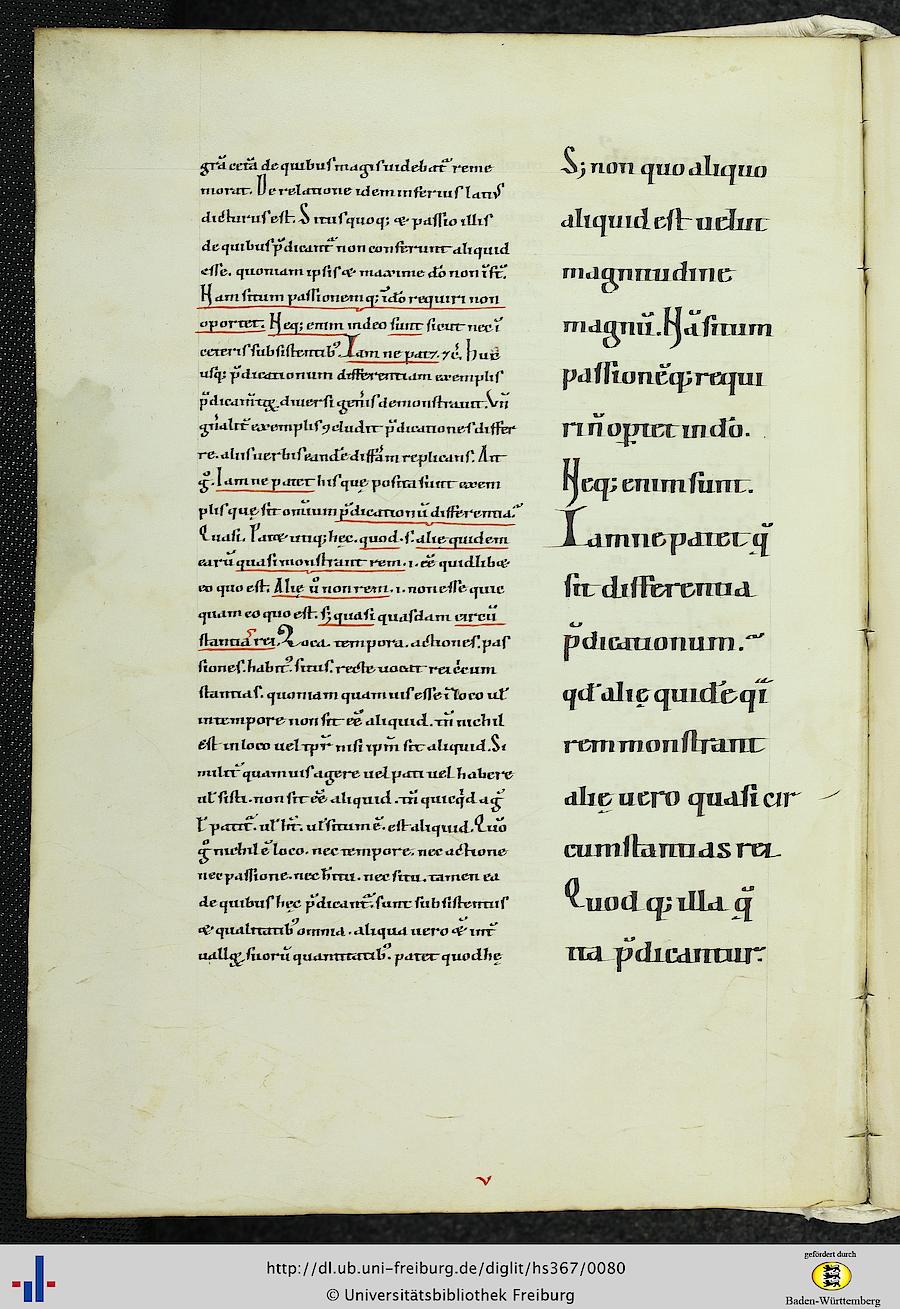 grā cetā de quibus magis uidebat᷑ reme
morat. De relatione idem inferius latiꝰ
dicturus est. Situs quoq; & passio illis
de quibus p̄dicant᷑ non conferunt aliquid
esse. quoniam ipsis & maxime dō non īst᷑.
Nam situm passionemq; ī dō requiri non
oportet. Neq; enim in deo sunt sicut nec ī
ceteris subsistentibꝰ. Iam ne pat&. ⁊c̄. Huc
usq; p̄dicationum differentiam exemplis
p̄dicam̄tꝝ diuersi gen̄is demonstrauit. Vn̄
gn̄alit᷑ exemplis ꝯcludit p̄dicationes differ
re. aliis uerbis eandē diffām replicans. Ait
g̊. Iam ne patet his quę posita sunt exem
plis quę sit om̄ium p̄dicationū differentia.
Quasi. Pate utiq; hęc. quod .s. alię quidem
earū quasi monstrant rem .i. eē quidlib&
eo quo est. Alię ů non rem .i. non esse quic
quam eo quo est. s; quasi quasdam circū
stantias rei. Loca. tempora. actiones. pas
siones. habitꝰ. situs. recte uocat rei circum
stantias. quoniam quamuis esse ī loco uł
in tempore non sit eē aliquid. tn̄ nichil
est in loco uel tp̄r nisi ip̄m sit aliquid. Si
milit᷑ quamuis agere uel pati uel habere
uł sisti. non sit eē aliquid. tn̄ quicq̇d aḡ
ł patit᷑. uł ht᷑. uł situm ē. est aliquid. Quō
g̊ nichil ē loco. nec tempore. nec actione
nec passione. nec h̄itu. nec situ. tamen ea
de quibus hęc p̄dicant᷑. sunt subsistentiis
& qualitatibꝰ omnia. aliqua uero & int᷑
uallꝝ suorū quantitatibꝰ. patet quod hę
S; non quo aliquo
aliquid est uelut
magnitudine
magnū. Nā situm
passionēq; requi
ri n̄ oportet in dō.
Neq; enim sunt.
Iamne patet q̄
sit differentia
p̄dicationum.
qd̄ alię quidē qͣi
rem monstrant
alię uero quasi cir
cumstantias rei
Quod q; illa q̄
ita p̄dicantur.
v
http://dl.ub.uni-freiburg.de/diglit/hs367/0080
© Universitätsbibliothek Freiburg
gefördert durch
Baden-Württemberg